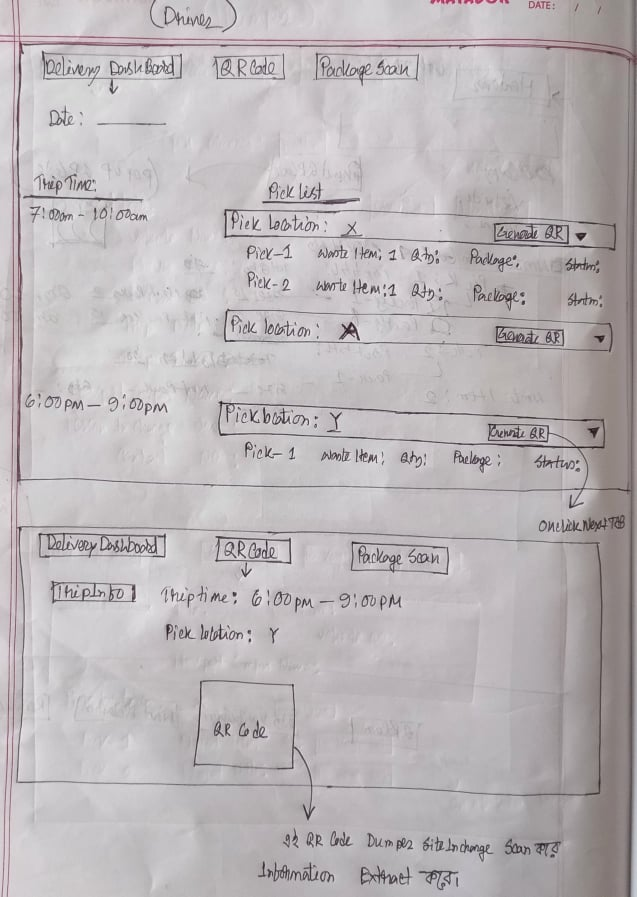 MATADOR DATE: / /
(Driver)
Delivery DashBoard QR Code Package Scan
Date: ______
Trip Time: Pick List
7:00am - 10:00am Pick Location: X Generate QR
Pick-1 Waste Item: 1 Qty: Package: Status:
Pick-2 Waste Item: 1 Qty: Package: Status:
Pick location: A Generate QR
6:00pm - 9:00pm Pick location: Y Generate QR
Pick-1 Waste Item: Qty: Package: Status:
Onclick Next TAB
Delivery Dashboard QR Code Package Scan
Trip Info Trip time: 6:00pm - 9:00pm
Pick location: Y
QR Code
এই QR Code Dumper Site Incharge Scan করে
Information Extract করে।